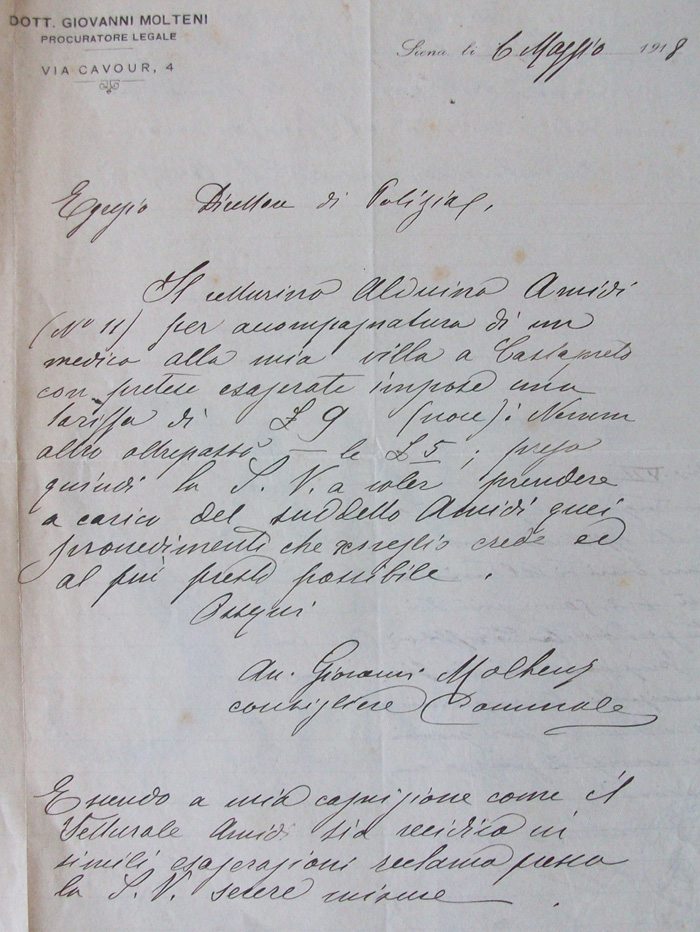 DOTT. GIOVANNI MOLTENI
PROCURATORE LEGALE
VIA CAVOUR, 4
Siena li 6 Maggio 1918
Egregio Direttore di Polizia,
Il vetturino Alduino Amidi
(No 11) per acompagnatura di un
medico alla mia villa a
con pretese esagerate impose una
tariffa di £ 9 (nove): Nessun
altro oltrepassò — le £ 5; prega
quindi la S. V. a voler prendere
a carico del suddetto Amidi quei
provedimenti che meglio crede ed
al più presto possibile.
Ossequi
Av. Giovanni Molteni
consigliere Comunale
Essendo a mia cognizione come il
Vetturale Amidi sia recidivo in
simili esagerazioni reclamo presso
la S. V. severe misure